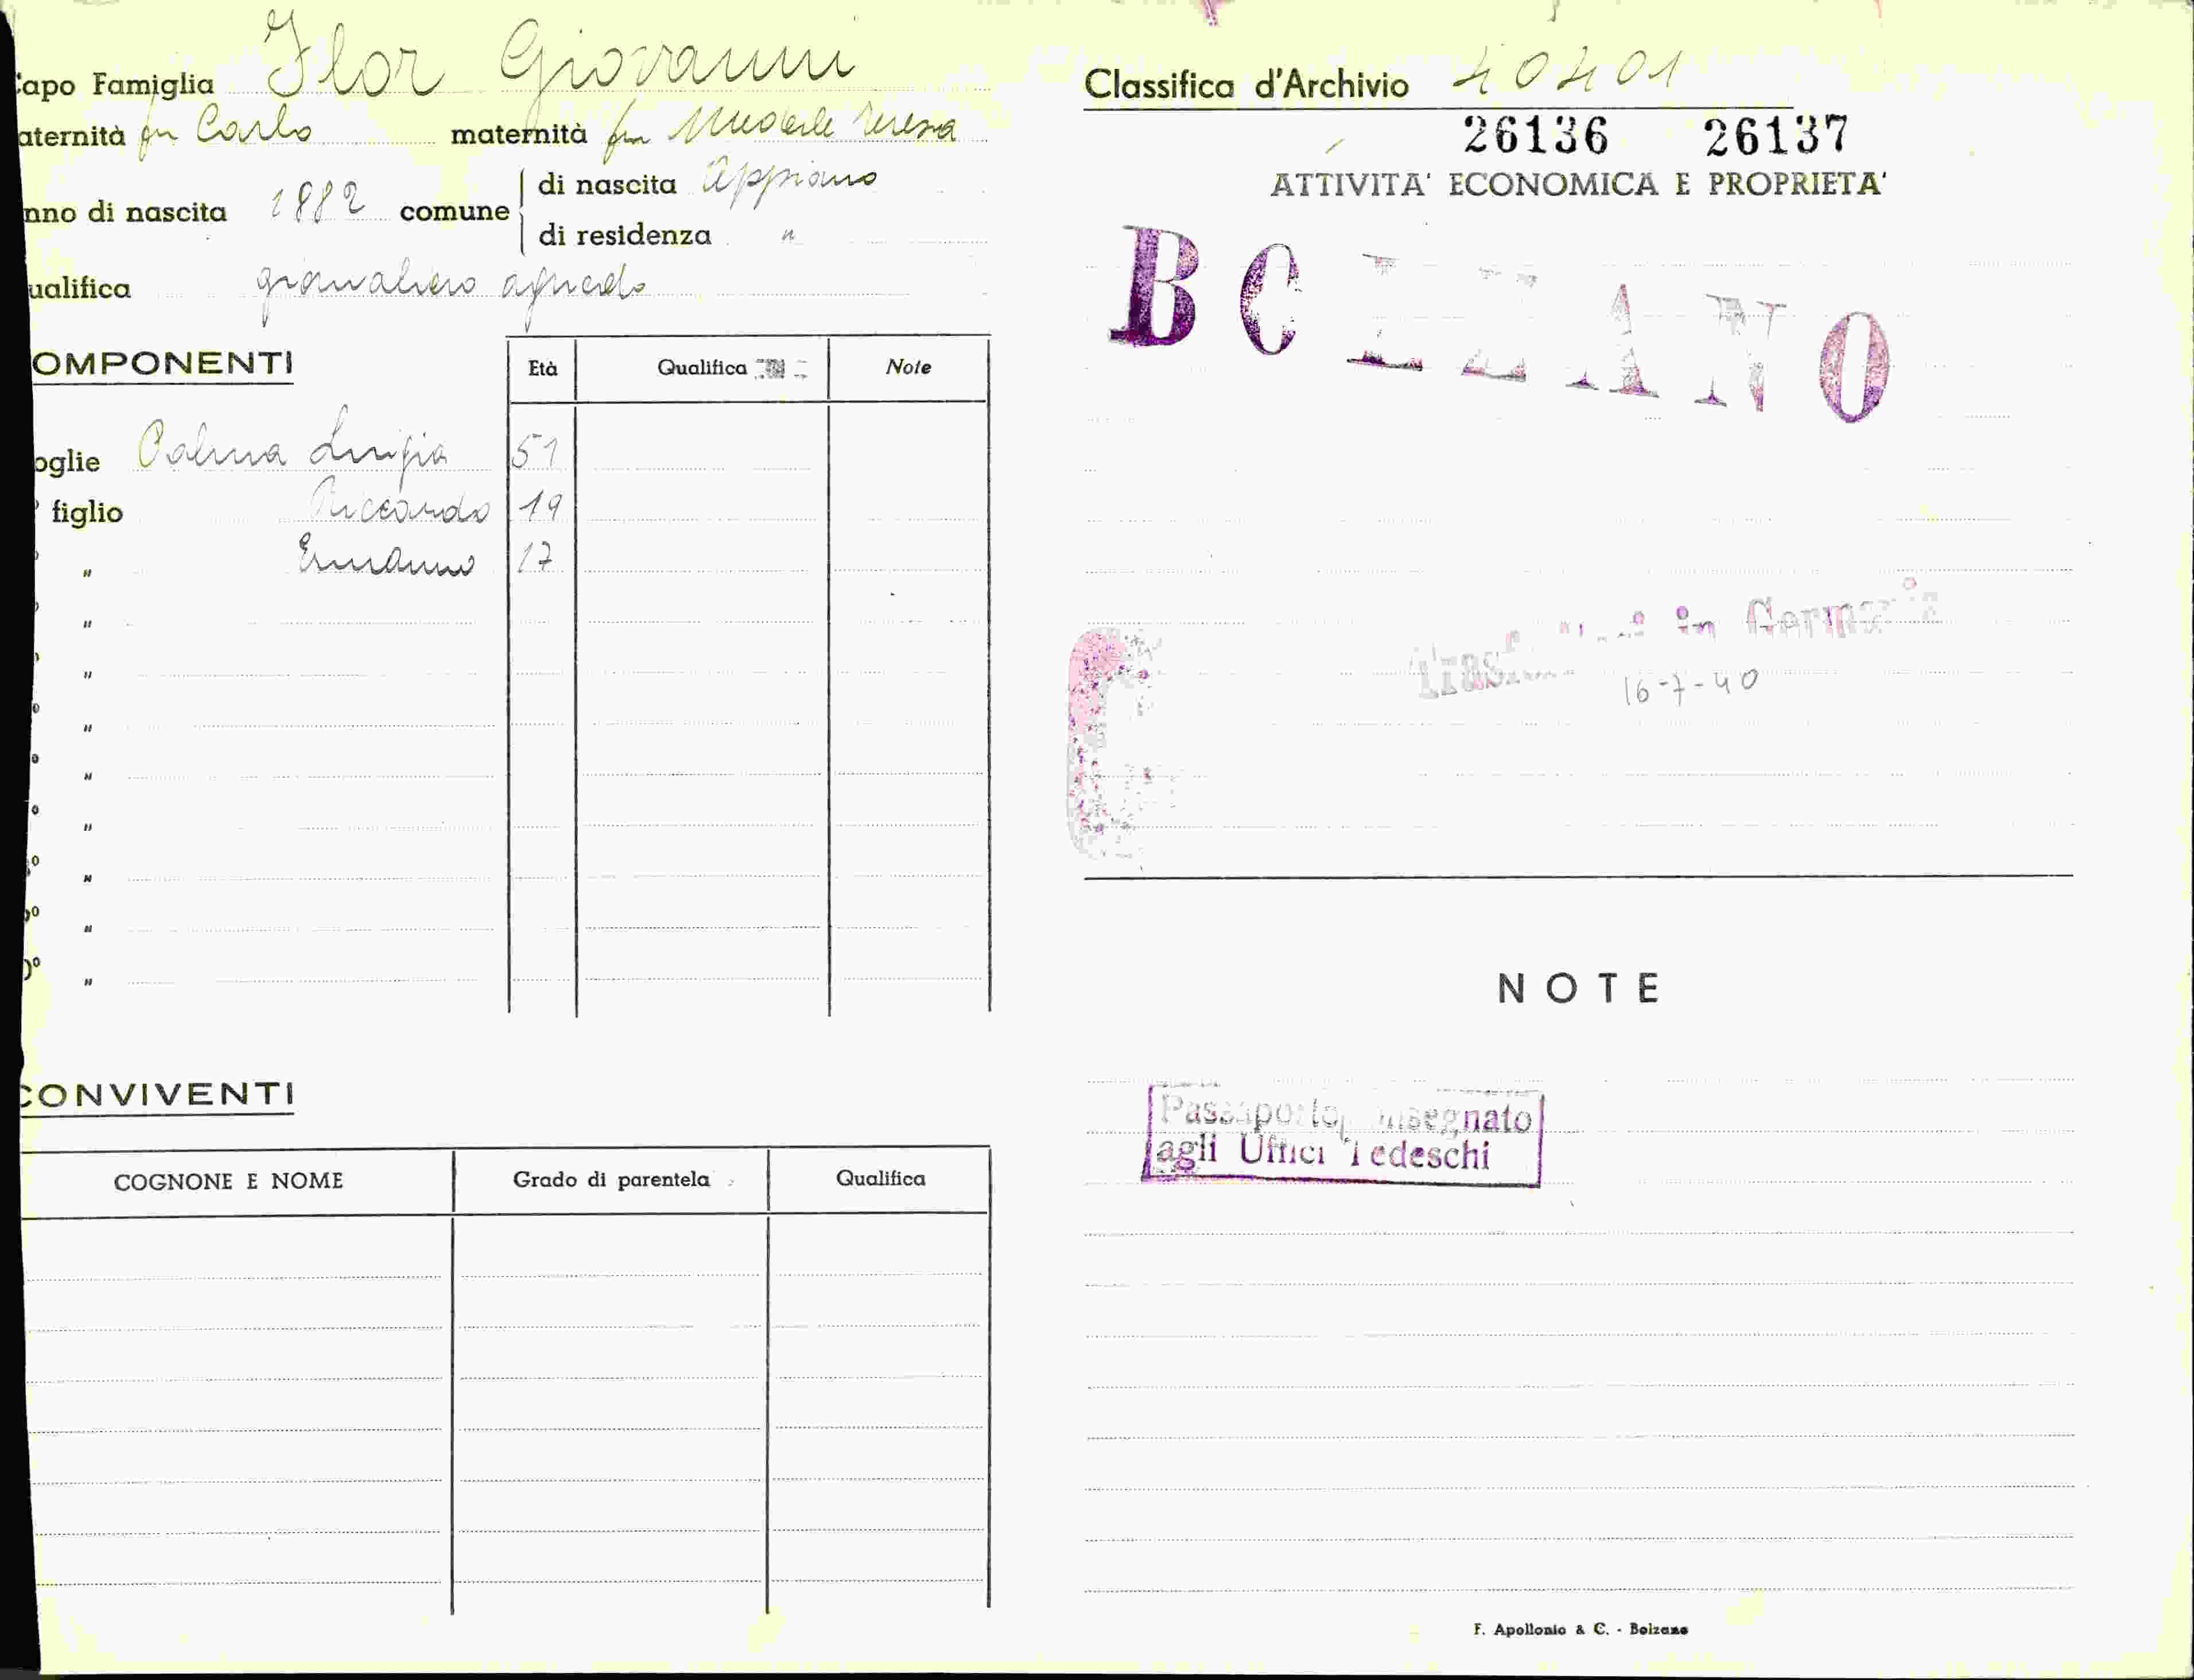 Capo Famiglia Flor Giovanni
aternità fu Carlo maternità fu Teresa
nno di nascita 1882 comune di nascita Appiano
di residenza "
ualifica giornaliero agricolo
OMPONENTI Età Qualifica Note
oglie Palma Luigia 51
figlio Riccardo 19
" Ermanno 17
"
"
"
"
"
"
"
"
CONVIVENTI
COGNONE E NOME Grado di parentela Qualifica
Classifica d'Archivio 40401
26136 26137
ATTIVITA' ECONOMICA E PROPRIETA'
BOLZANO
in Germania
16-7-40
NOTE
Passaporto consegnato
agli Uffici Tedeschi
F. Apollonio & C. - Bolzano